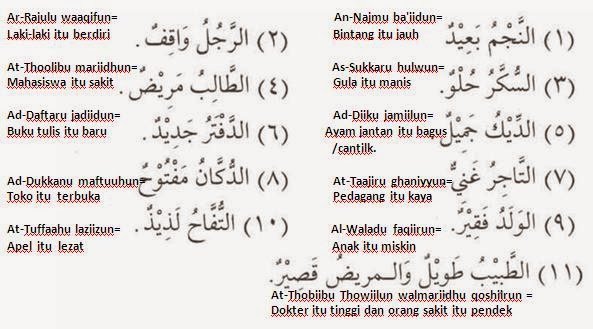 An-Najmu ba'iidun=
Bintang itu jauh
(١) النَّجْمُ بَعِيْدٌ
Ar-Rajulu waaqifun=
Laki-laki itu berdiri
(٢) الرَّجُلُ وَاقِفٌ.
As-Sukkaru hulwun=
Gula itu manis
(٣) السُّكَّرُ حُلْوٌ.
At-Thoolibu mariidhun=
Mahasiswa itu sakit
(٤) الطَّالِبُ مَرِيْضٌ.
Ad-Diiku jamiilun=
Ayam jantan itu bagus
/cantilk.
(٥) الدِّيْكُ جَمِيْلٌ
Ad-Daftaru jadiidun=
Buku tulis itu baru
(٦) الدَّفْتَرُ جَدِيْدٌ.
At-Taajiru ghaniyyun=
Pedagang itu kaya
(٧) التَّاجِرُ غَنِيٌّ
Ad-Dukkanu maftuuhun=
Toko itu terbuka
(٨) الدُّكَّانُ مَفْتُوْحٌ
Al-Waladu faqiirun=
Anak itu miskin
(٩) الوَلَدُ فَقِيْرٌ.
At-Tuffaahu laziizun=
Apel itu lezat
(١٠) التُّفَّاحُ لَذِيْذٌ.
(١١) الطَّبِيْبُ طَوِيْلٌ وَالـمريضُ قَصِيْرٌ.
At-Thobiibu Thowiilun walmariidhu qoshiirun =
Dokter itu tinggi dan orang sakit itu pendek